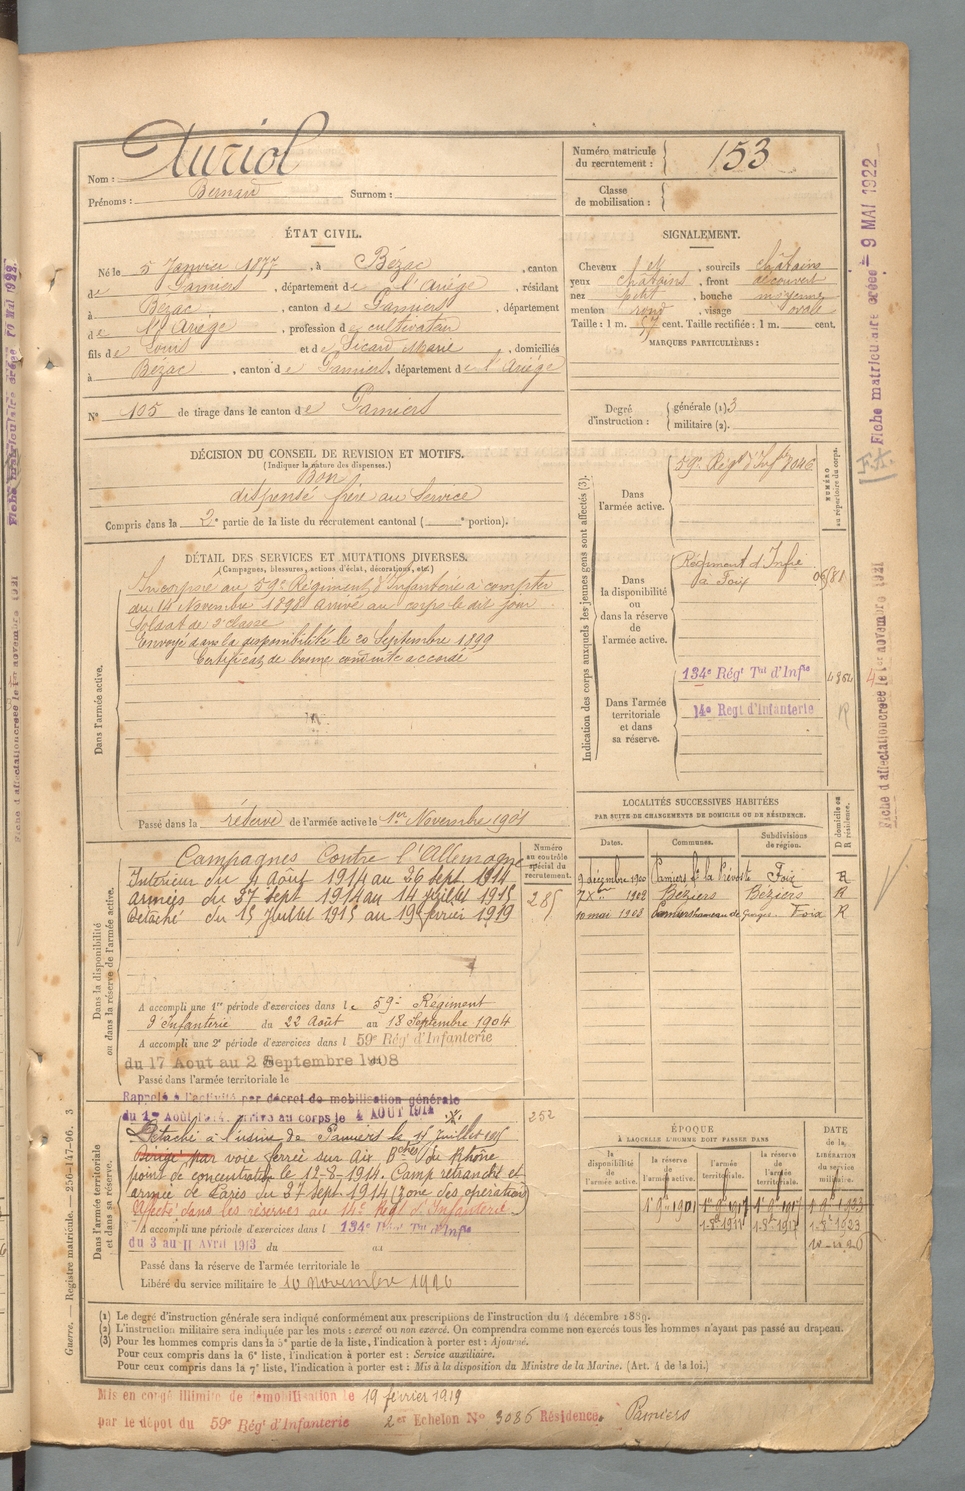 Nom : Auriol
Prénoms : Bernard Surnom :
Numéro matricule du recrutement : 153
Classe de mobilisation :
ÉTAT CIVIL.
Né le 5 Janvier 1877, à Bézac, canton
de Pamiers, département de l'Ariége, résidant
à Bézac, canton de Pamiers, département
de l'Ariége, profession de cultivateur
fils de Louis et de Sicard Marie, domiciliés
à Bezac, canton de Pamiers, département de l'Ariége
N° 105 de tirage dans le canton de Pamiers
SIGNALEMENT.
Cheveux et, sourcils châtains
yeux châtains, front découvert
nez petit, bouche moyenne
menton rond, visage ovale
Taille : 1 m. 67 cent. Taille rectifiée : 1 m. cent.
MARQUES PARTICULIÈRES :
Degré d'instruction : générale (1). 3
militaire (2).
DÉCISION DU CONSEIL DE REVISION ET MOTIFS.
(Indiquer la nature des dispenses.)
Bon
dispensé frère au Service
Compris dans la 2e partie de la liste du recrutement cantonal ( e portion).
DÉTAIL DES SERVICES ET MUTATIONS DIVERSES.
(Campagnes, blessures, actions d'éclat, décorations, etc.)
Dans l'armée active.
Incorporé au 59e Régiment d'Infanterie à compter
du 14 Novembre 1898 arrivé au corps le dit jour
Soldat de 2e classe
Envoyé dans la disponibilité le 20 Septembre 1899
Certificat de bonne conduite accordé
Passé dans la réserve de l'armée active le 1er Novembre 1901
Indication des corps auxquels les jeunes gens sont affectés (3).
NUMÉRO au répertoire du corps.
Dans l'armée active.
59e Régt d'Infie 7046
Dans la disponibilité ou dans la réserve de l'armée active.
Régiment d'Infie
à Foix
Dans l'armée territoriale et dans sa réserve.
134e Régt Tal d'Infie
14e Regt d'Infanterie
R
LOCALITÉS SUCCESSIVES HABITÉES
PAR SUITE DE CHANGEMENTS DE DOMICILE OU DE RÉSIDENCE.
Dates. Communes. Subdivisions de région. D domicile ou R résidence.
9 décembre 1900 Pamiers Foix R
7Xbre 1902 Béziers Béziers R
10 mai 1908 Pamiers hameau de Foix R
Dans la disponibilité ou dans la réserve de l'armée active.
Numéro au contrôle spécial du recrutement.
Campagnes Contre l'Allemagne
Intérieur du 4 Août 1914 au 26 sept. 1914
armées du 27 sept 1914 au 14 juillet 1915
Détaché du 15 Juillet 1915 au 19 février 1919
285
A accompli une 1re période d'exercices dans le 59e Régiment
d'Infanterie du 22 Août au 18 Septembre 1904
A accompli une 2e période d'exercices dans l 59e Régt d'Infanterie
du 17 Aout au 2 Septembre 1908
Passé dans l'armée territoriale le
Dans l'armée territoriale et dans sa réserve.
Rappelé à l'activité par décret de mobilisation générale
du 1er Août 1914. arrivé au corps le 4 AOUT 1914
252
Détaché à l'usine de Pamiers le 15 Juillet 1915
Dirigé par voie ferrée sur Aix Bches du Rhône
point de concentration le 12-8-1914. Camp retranché et
armée de Paris du 27 sept. 1914 (zone des opérations)
Affecté dans les réserves au 14e Régt d'Infanterie
A accompli une période d'exercices dans l 134e Régt Tal d'Infie
du 3 au 11 Avril 1913 du au
Passé dans la réserve de l'armée territoriale le
Libéré du service militaire le 10 novembre 1926
ÉPOQUE
À LAQUELLE L'HOMME DOIT PASSER DANS
la disponibilité de l'armée active. la réserve de l'armée active. l'armée territoriale. la réserve de l'armée territoriale.
DATE de la LIBÉRATION du service militaire.
1er 9bre 1901
(1) Le degré d'instruction générale sera indiqué conformément aux prescriptions de l'instruction du 4 décembre 1889.
(2) L'instruction militaire sera indiquée par les mots : exercé ou non exercé. On comprendra comme non exercés tous les hommes n'ayant pas passé au drapeau.
(3) Pour les hommes compris dans la 5e partie de la liste, l'indication à porter est : Ajourné.
Pour ceux compris dans la 6e liste, l'indication à porter est : Service auxiliaire.
Pour ceux compris dans la 7e liste, l'indication à porter est : Mis à la disposition du Ministre de la Marine. (Art. 4 de la loi.)
Mis en congé illimité de démobilisation le 19 février 1919
par le dépot du 59e Régt d'Infanterie 2er Echelon N° 3086 Résidence Pamiers
Guerre. — Registre matricule. — 256-147-96. 3
Fiche matriculaire créée = 9 MAI 1922
F.A.
Fiche d'affectation créée le 1er novembre 1921